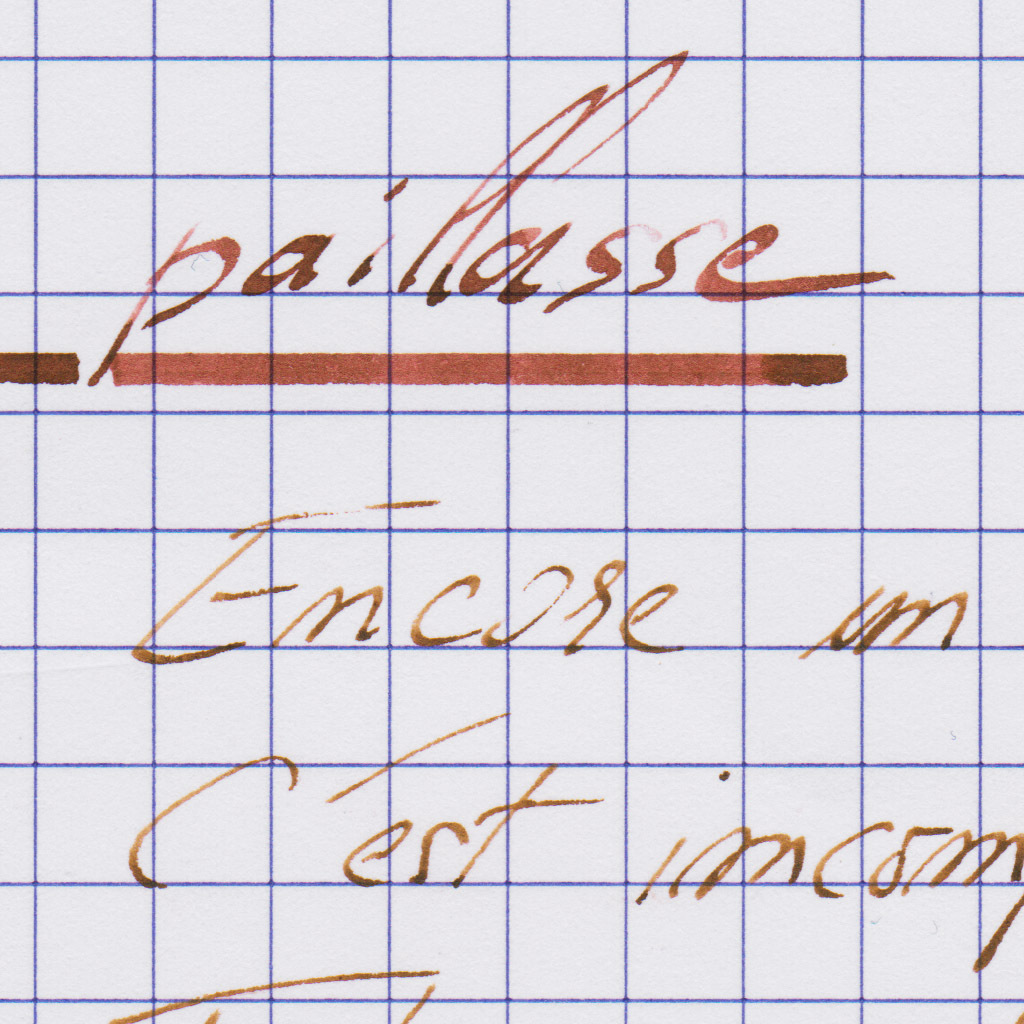 paillasse
Encore un
C'est incomp